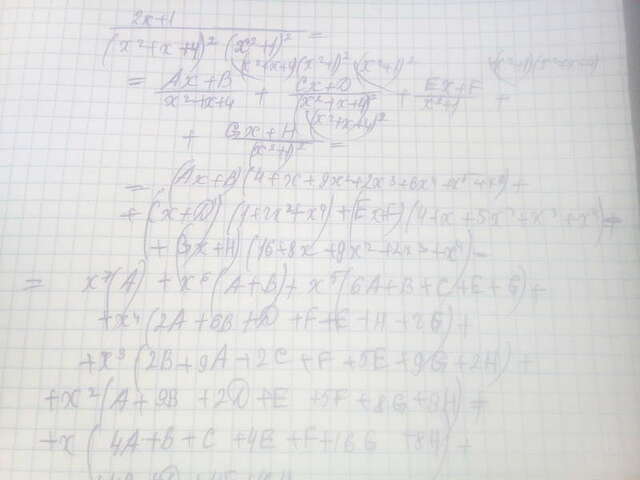 2x+1
(x²+x+4)² (x²+1)² =
(x²+x+4)(x²+1)² (x²+1)²
= Ax+B / x²+x+4 + Cx+D / (x²+x+4)² + Ex+F / x²+1 +
(x²+x+4)²
+ Gx+H / (x²+1)² =
= (Ax+B)(4+x+9x²+2x³+6x⁴+x⁵+x⁶)+
+(Cx+D)(1+2x²+x⁴)+(Ex+F)(4+x+5x²+x³+x⁴)+
+(Gx+H)(16+8x+9x²+2x³+x⁴)=
= x⁷(A)+x⁶(A+B)+x⁵(6A+B+C+E+G)+
+x⁴(2A+6B+D+F+E+H+2G)+
+x³(2B+9A+2C+F+5E+9G+2H)+
+x²(A+9B+2D+E+5F+8G+9H)+
+x(4A+B+C+4E+F+16G+8H)+